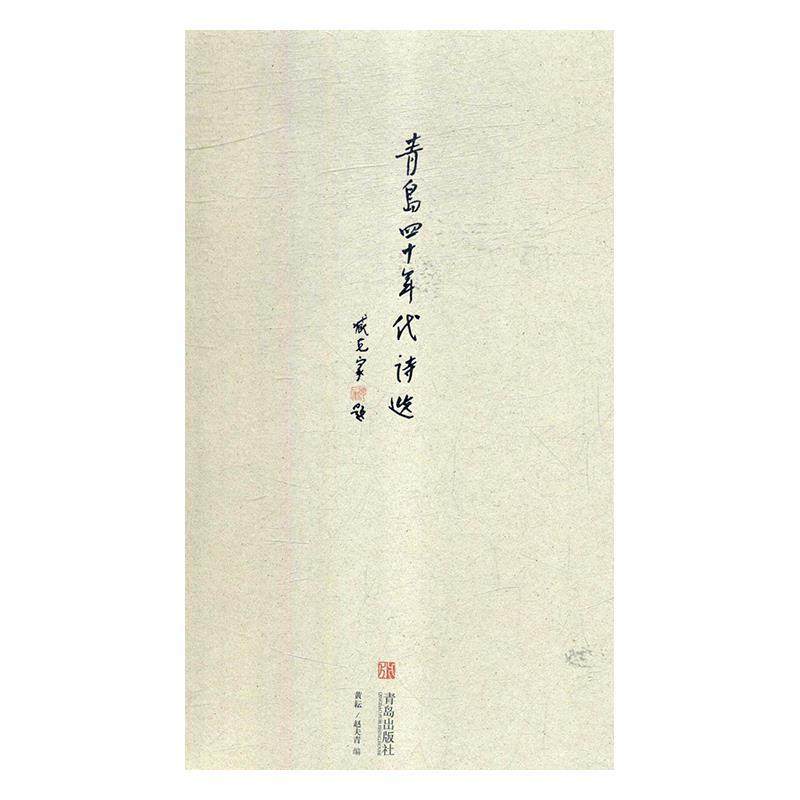 青島四十年代诗选
臧克家题
青岛出版社
QINGDAO PUBLISHING HOUSE
黄耘 / 赵夫青 编